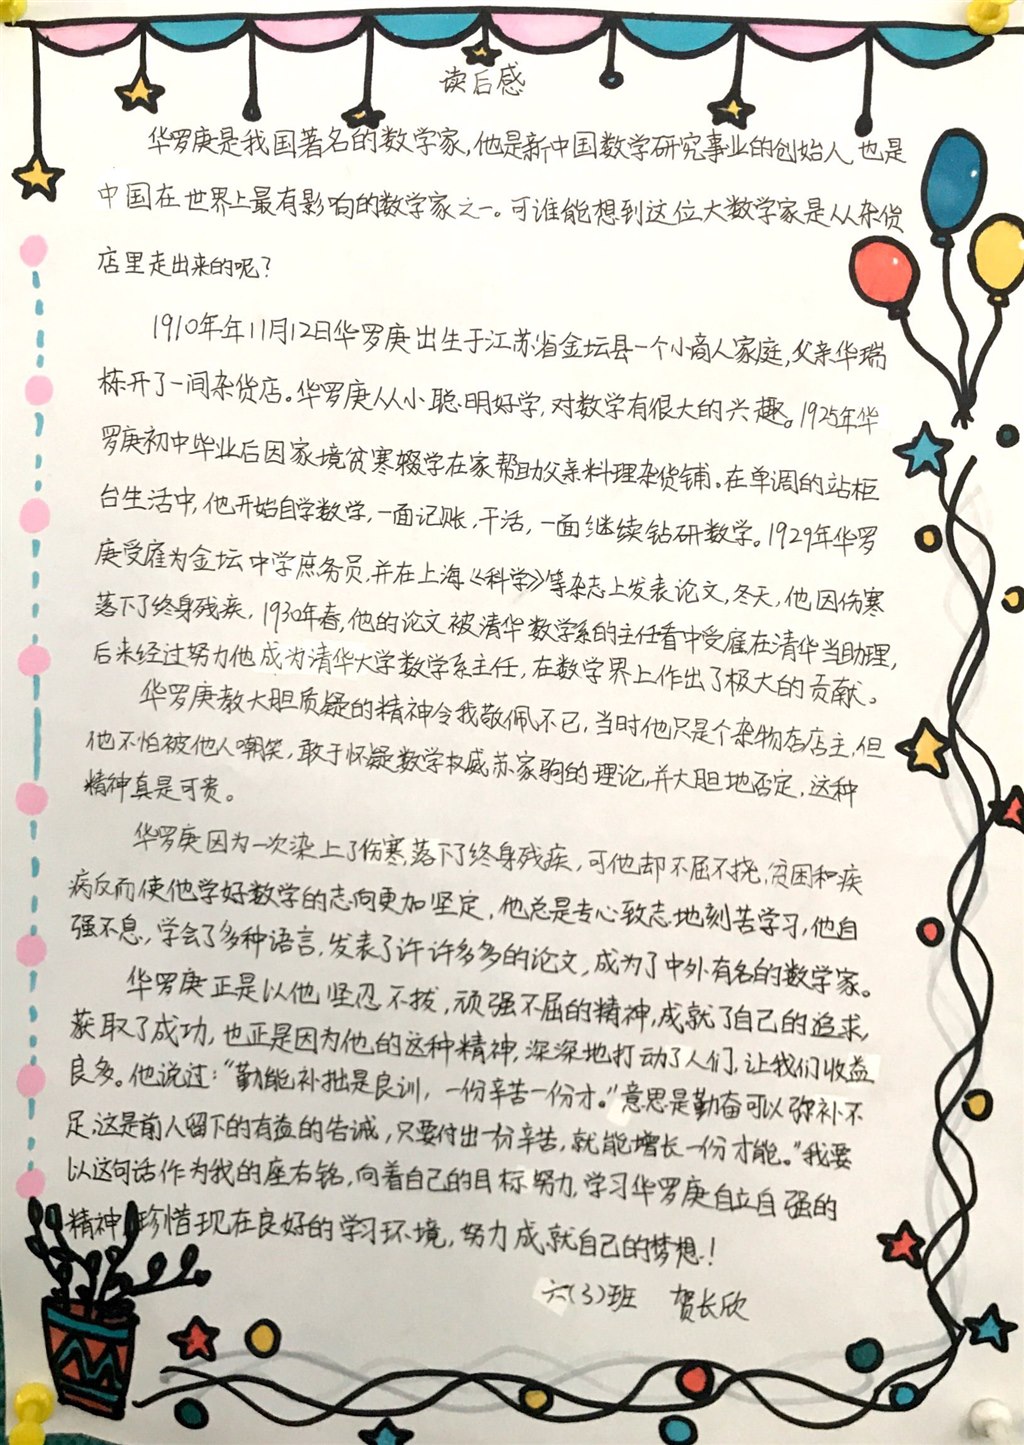 读后感
华罗庚是我国著名的数学家,他是新中国数学研究事业的创始人,也是
中国在世界上最有影响的数学家之一。可谁能想到这位大数学家是从杂货
店里走出来的呢?
1910年年11月12日华罗庚出生于江苏省金坛县一个小商人家庭,父亲华瑞
栋开了一间杂货店。华罗庚从小聪明好学,对数学有很大的兴趣。1925年华
罗庚初中毕业后因家境贫寒辍学在家帮助父亲料理杂货铺。在单调的站柜
台生活中,他开始自学数学,一面记账,干活,一面继续钻研数学。1929年华罗
庚受雇为金坛中学庶务员,并在上海《科学》等杂志上发表论文,冬天,他因伤寒
落下了终身残疾,1930年春,他的论文被清华数学系的主任看中受雇在清华当助理,
后来经过努力他成为清华大学数学系主任,在数学界上作出了极大的贡献。
华罗庚教大胆质疑的精神令我敬佩不已,当时他只是个杂物店店主,但
他不怕被他人嘲笑,敢于怀疑数学权威苏家驹的理论,并大胆地否定,这种
精神真是可贵。
华罗庚因为一次染上了伤寒,落下了终身残疾,可他却不屈不挠,贫困和疾
病反而使他学好数学的志向更加坚定,他总是专心致志地刻苦学习,他自
强不息,学会了多种语言,发表了许许多多的论文,成为了中外有名的数学家。
华罗庚正是以他坚忍不拔,顽强不屈的精神,成就了自己的追求,
获取了成功,也正是因为他的这种精神,深深地打动了人们,让我们收益
良多。他说过:“勤能补拙是良训,一份辛苦一份才。”意思是勤奋可以弥补不
足,这是前人留下的有益的告诫,只要付出一份辛苦,就能增长一份才能。”我要
以这句话作为我的座右铭,向着自己的目标努力,学习华罗庚自立自强的
精神,珍惜现在良好的学习环境,努力成就自己的梦想!
六(3)班 贺长欣